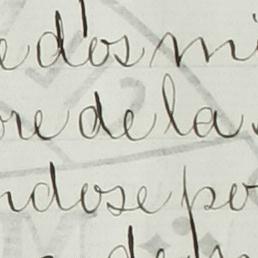 edos mi
re de la
ndose po